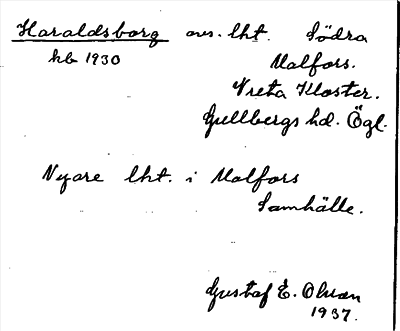 Haraldsborg avs. lht. Södra
hb 1930 Malfors.
Vreta Kloster.
Gullbergs hd. Ögl.
Nyare lht. i Malfors
Samhälle.
Gustaf E. Olsson
1937.